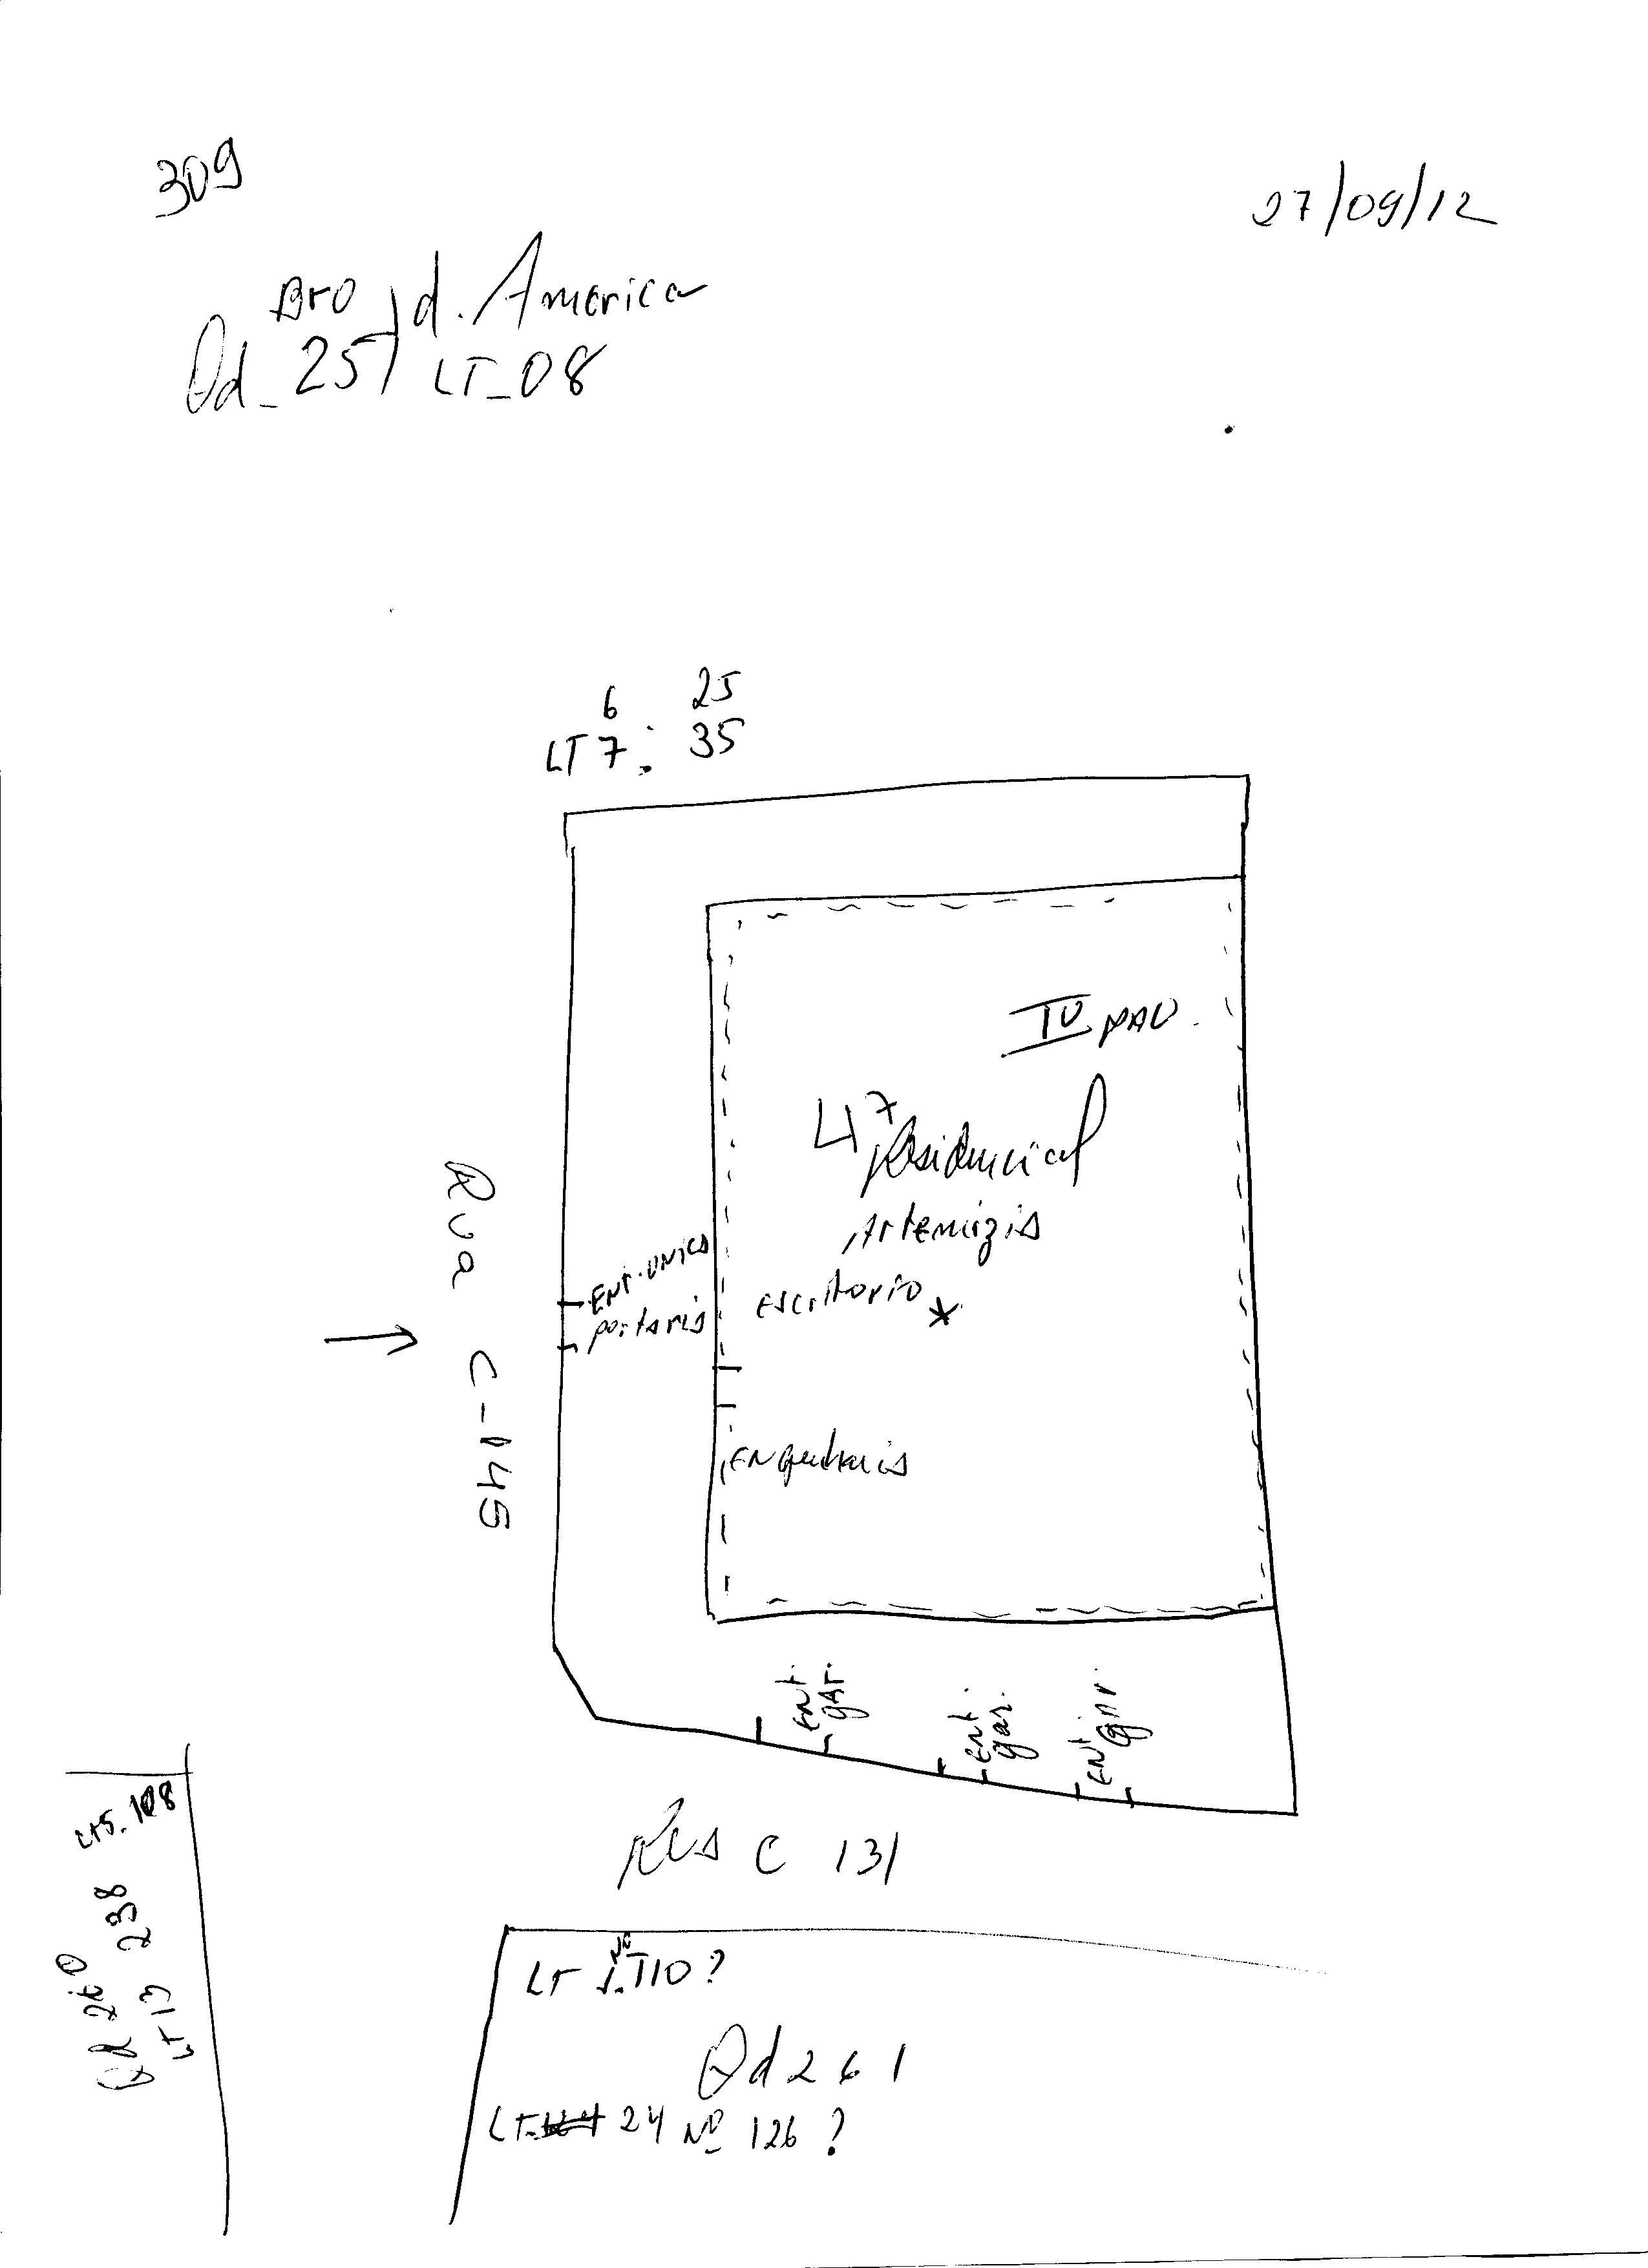 309
27/09/12
Bro Jd. America
Qd_257 LT_08
6 25
LT 7: 35
IV PAV.
47
Residencial
Artemizia
Ent. unica
portaria
escritorio *
Engenharia
Rua C-145
Ent. gar.
Ent. gar.
Ent. gar.
Rua C 131
LTS. 108
Qd 260 238
LT 13
LT 1 Nº 110?
Qd 261
LT 24 Nº 126 ?